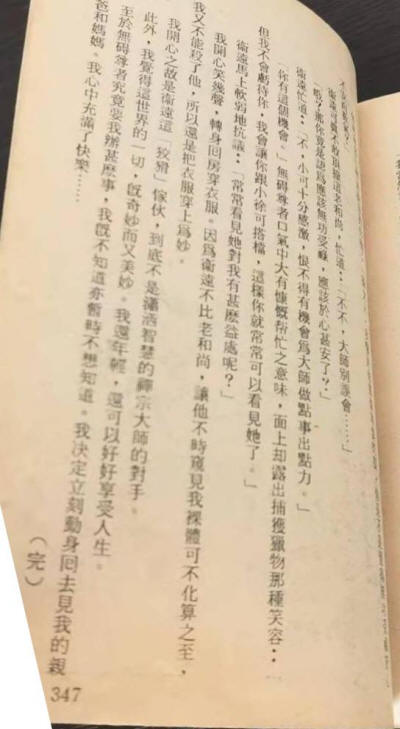 衛遠可真不敢頂撞這老和尚，忙道：「不不，大師別誤會……」
「哦？那你竟是認爲應該無功受祿，應該於心甚安了？」
衛遠忙道：「不，小可十分感激，恨不得有機會爲大師做點事出點力。」
「你有這個機會。」無碍尊者口氣中大有慷慨帮忙之意味，面上却露出捕獲獵物那種笑容：
但我不會虧待你，我會讓你跟小徐可搭檔，這樣你就常常可以看見她了。」
衛遠馬上軟弱地抗議：「常常看見她對我有甚麽益處呢？」
我開心笑幾聲，轉身回房穿衣服。因爲衛遠不比老和尚，讓他不時窺見我裸體可不化算之至，
我又不能殺了他，所以還是把衣服穿上爲妙。
我開心之故是衛遠這「狡猾」傢伙，到底不是瀟洒智慧的禪宗大師的對手。
此外，我覺得這世界的一切，旣奇妙而又美妙。我還年輕，還可以好好享受人生。
至於無碍尊者究竟要我辦甚麽事，我旣不知道亦暫時不想知道。我決定立刻動身回去見我的親
爸和媽媽。我心中充滿了快樂……
（完）
347